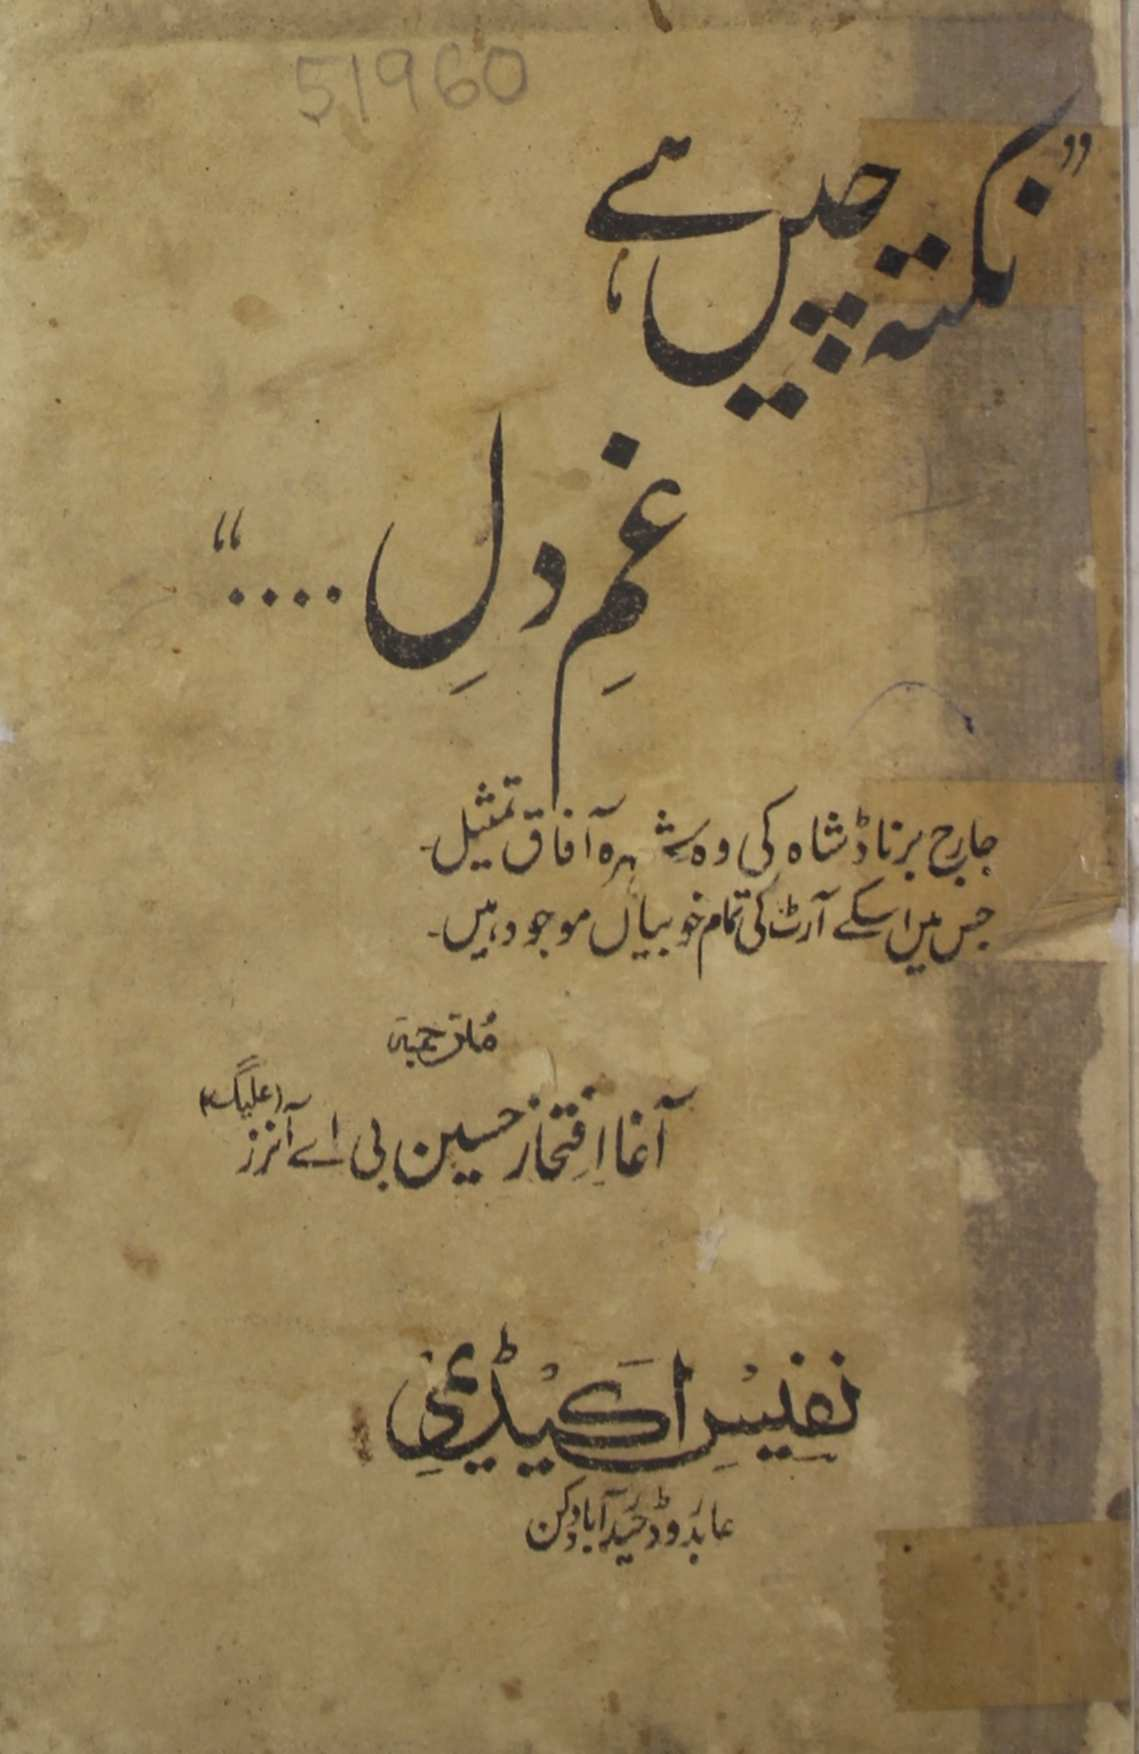 51960
”نکتہ چیں ہے،
غمِ دلِ ....“
جارج برناڈشاہ کی وہ شہرہ آفاق تمثیل۔
جس میں اسکے آرٹ کی تمام خوبیاں موجود ہیں۔
مترجمہ
آغا افتخار حسین بی اے آنرز (علیگ)
نفیس اکیڈیمی
عابد روڈ حیدرآباد دکن